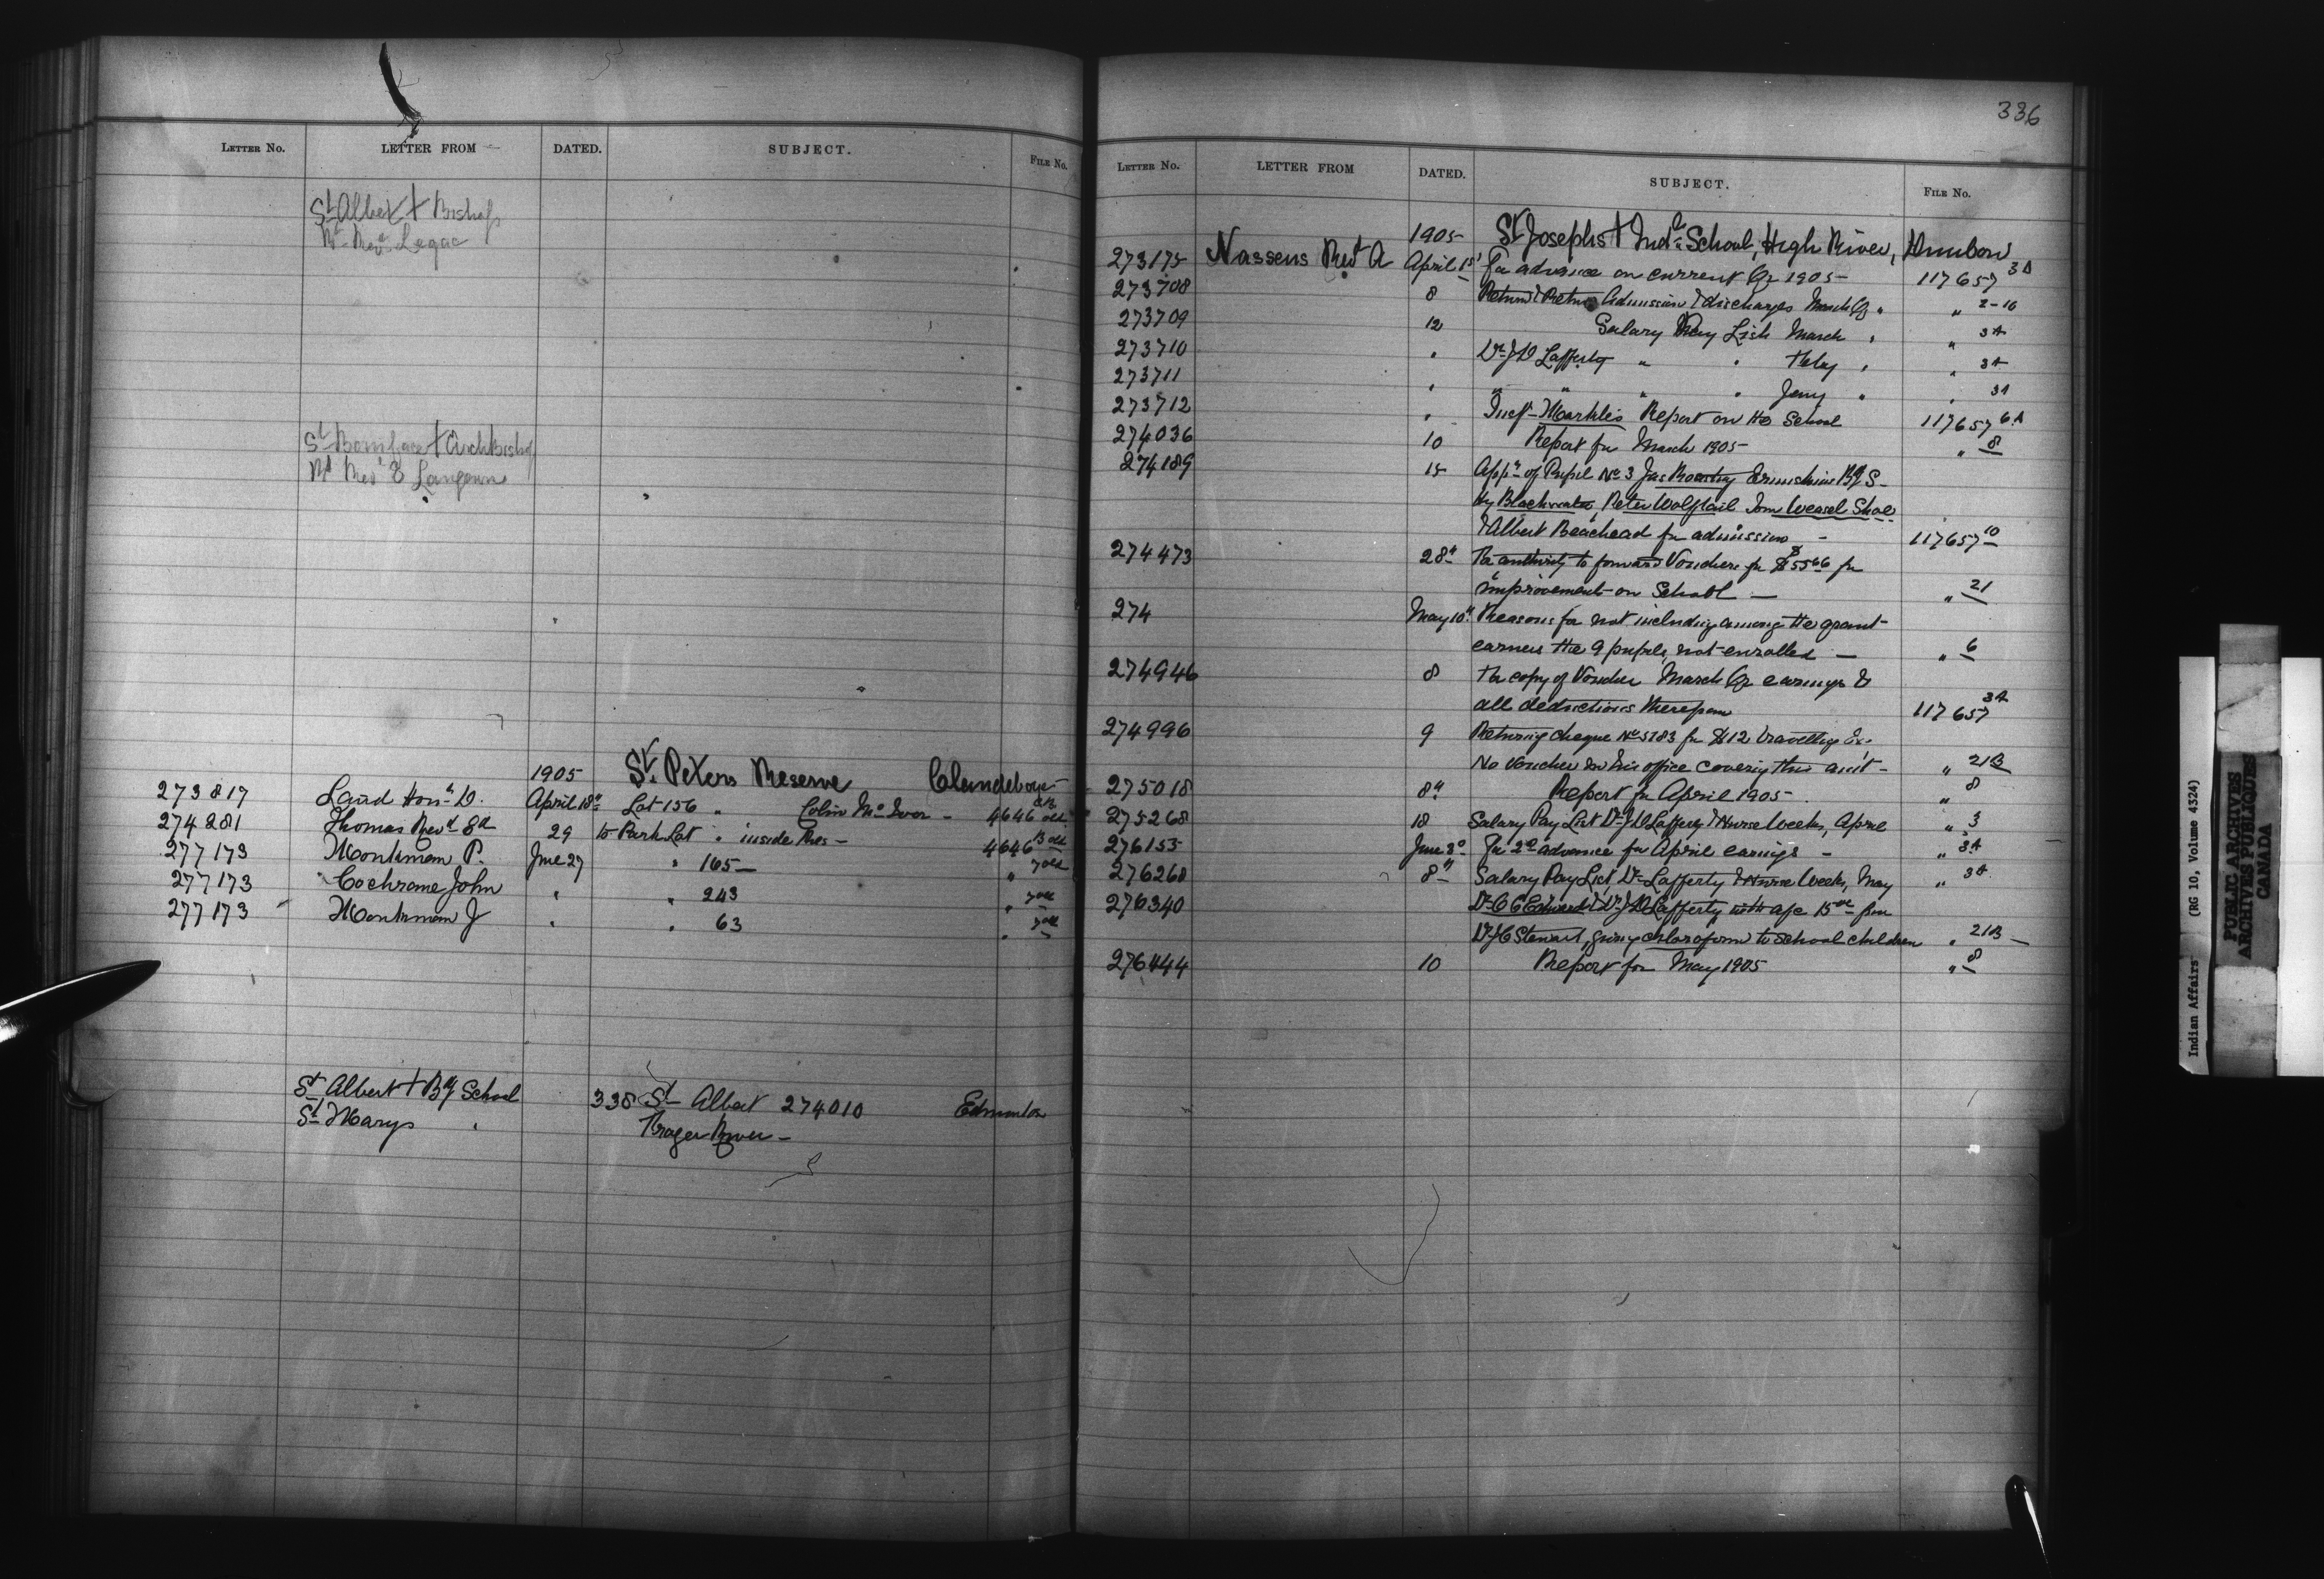 LETTER No. LETTER FROM DATED. SUBJECT. FILE No.
St Albert + Bishop
Rt Revd Legac
St Boniface + ArchBishop
Rt Revd Langevin
1905 St. Peters Reserve Clandeboye
273817 Laird Honl D. April 18th Lot 156 " Colin McIvor - 4646 old
274281 Thomas Revd 29 to Park Lot " inside Res - 4646 13 old
277173 Monkman P. June 27 " 165 — " 7 old
277173 Cochrane John " " 243 " 7 old
277173 Monkman J " " 63 " 7 old
St Albert + Bg School 338 St Albert 274010 Edmonton
St Marys "
336
LETTER No. LETTER FROM DATED. SUBJECT. FILE No.
1905 St Josephs + Indl School, High River, Dunbow
273175 Nassens Revd A April 1st For advance on current Qr 1905 - 117657 3A
273708 8 Return Admission & discharges March Qr " " 2-16
273709 12 Salary Pay List March " " 3A
273710 " Dr J D Lafferty " " Feby " " 3A
273711 " " " " " Jany " " 3A
273712 " Inspr Markle's Report on the School 117657 6A
274036 10 Report for March 1905 - " 8
274189 15 Appn of Pupil No 3 Jas Ermiskine Bg S-
Hy Blackwater, Peter Wolftail Tom Weasel Shoe
& Albert Beachead for admission - 117657 10
274473 28th For authority to forward Vouchers for $55 66 for
improvements on School — " 21
274 May 10th Reasons for not including among the grant-
earners the 9 pupils, not enrolled — " 6
274946 8 For copy of Voucher March Qr earnings &
all deductions therefrom 117657 3A
274996 9 Returning cheque No 5783 for $12 travelling Ex.
No Voucher in his office covering this amt - " 21B
275018 8th Report for April 1905 - " 8
275268 18 Salary Pay List Dr J D Lafferty & Nurse Weeks, April " 3
276155 June 3d For 2d advance for April earnings - " 3A
276268 8th Salary Pay List Dr Lafferty & Nurse Weeks, May " 3A
276340 Dr Edwards & Dr J D Lafferty with a/c 15 00 from
Dr J C Stewart, giving chloroform to School children " 21B —
276444 10 Report for May 1905 " 8
Indian Affairs (RG 10, Volume 4324)
PUBLIC ARCHIVES
ARCHIVES PUBLIQUES
CANADA